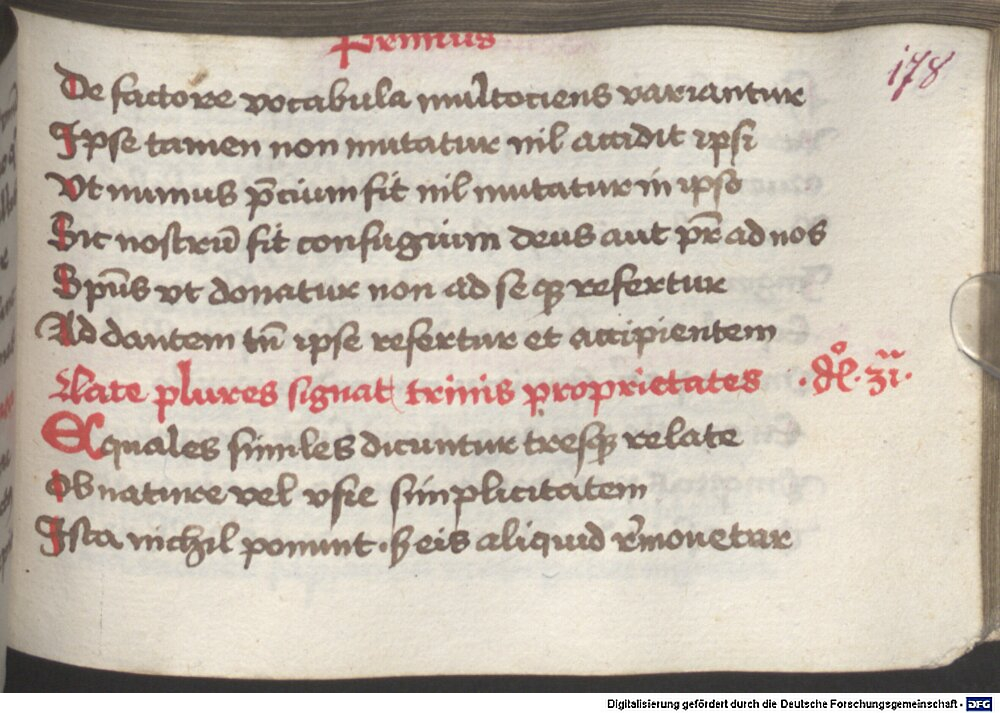 Primus
178
De factore vocabula multociens variantur
Ipse tamen non mutatur nil accidit ipsi
Vt numus p̄cium fit nil mutatur in ipso
Sic nostrū fit confugium deus aut pr̄ ad nos
Spūs vt donatur non ad se qꝫ refertur
Ad dantem tn̄ ipse refertur et accipientem
Late plures signat trinis proprietates
Equales similes dicuntur tresqꝫ relate
Ob nature vel vsie simplicitatem
Ista nichil ponunt · hijs aliquid remouetur
Digitalisierung gefördert durch die Deutsche Forschungsgemeinschaft - DFG